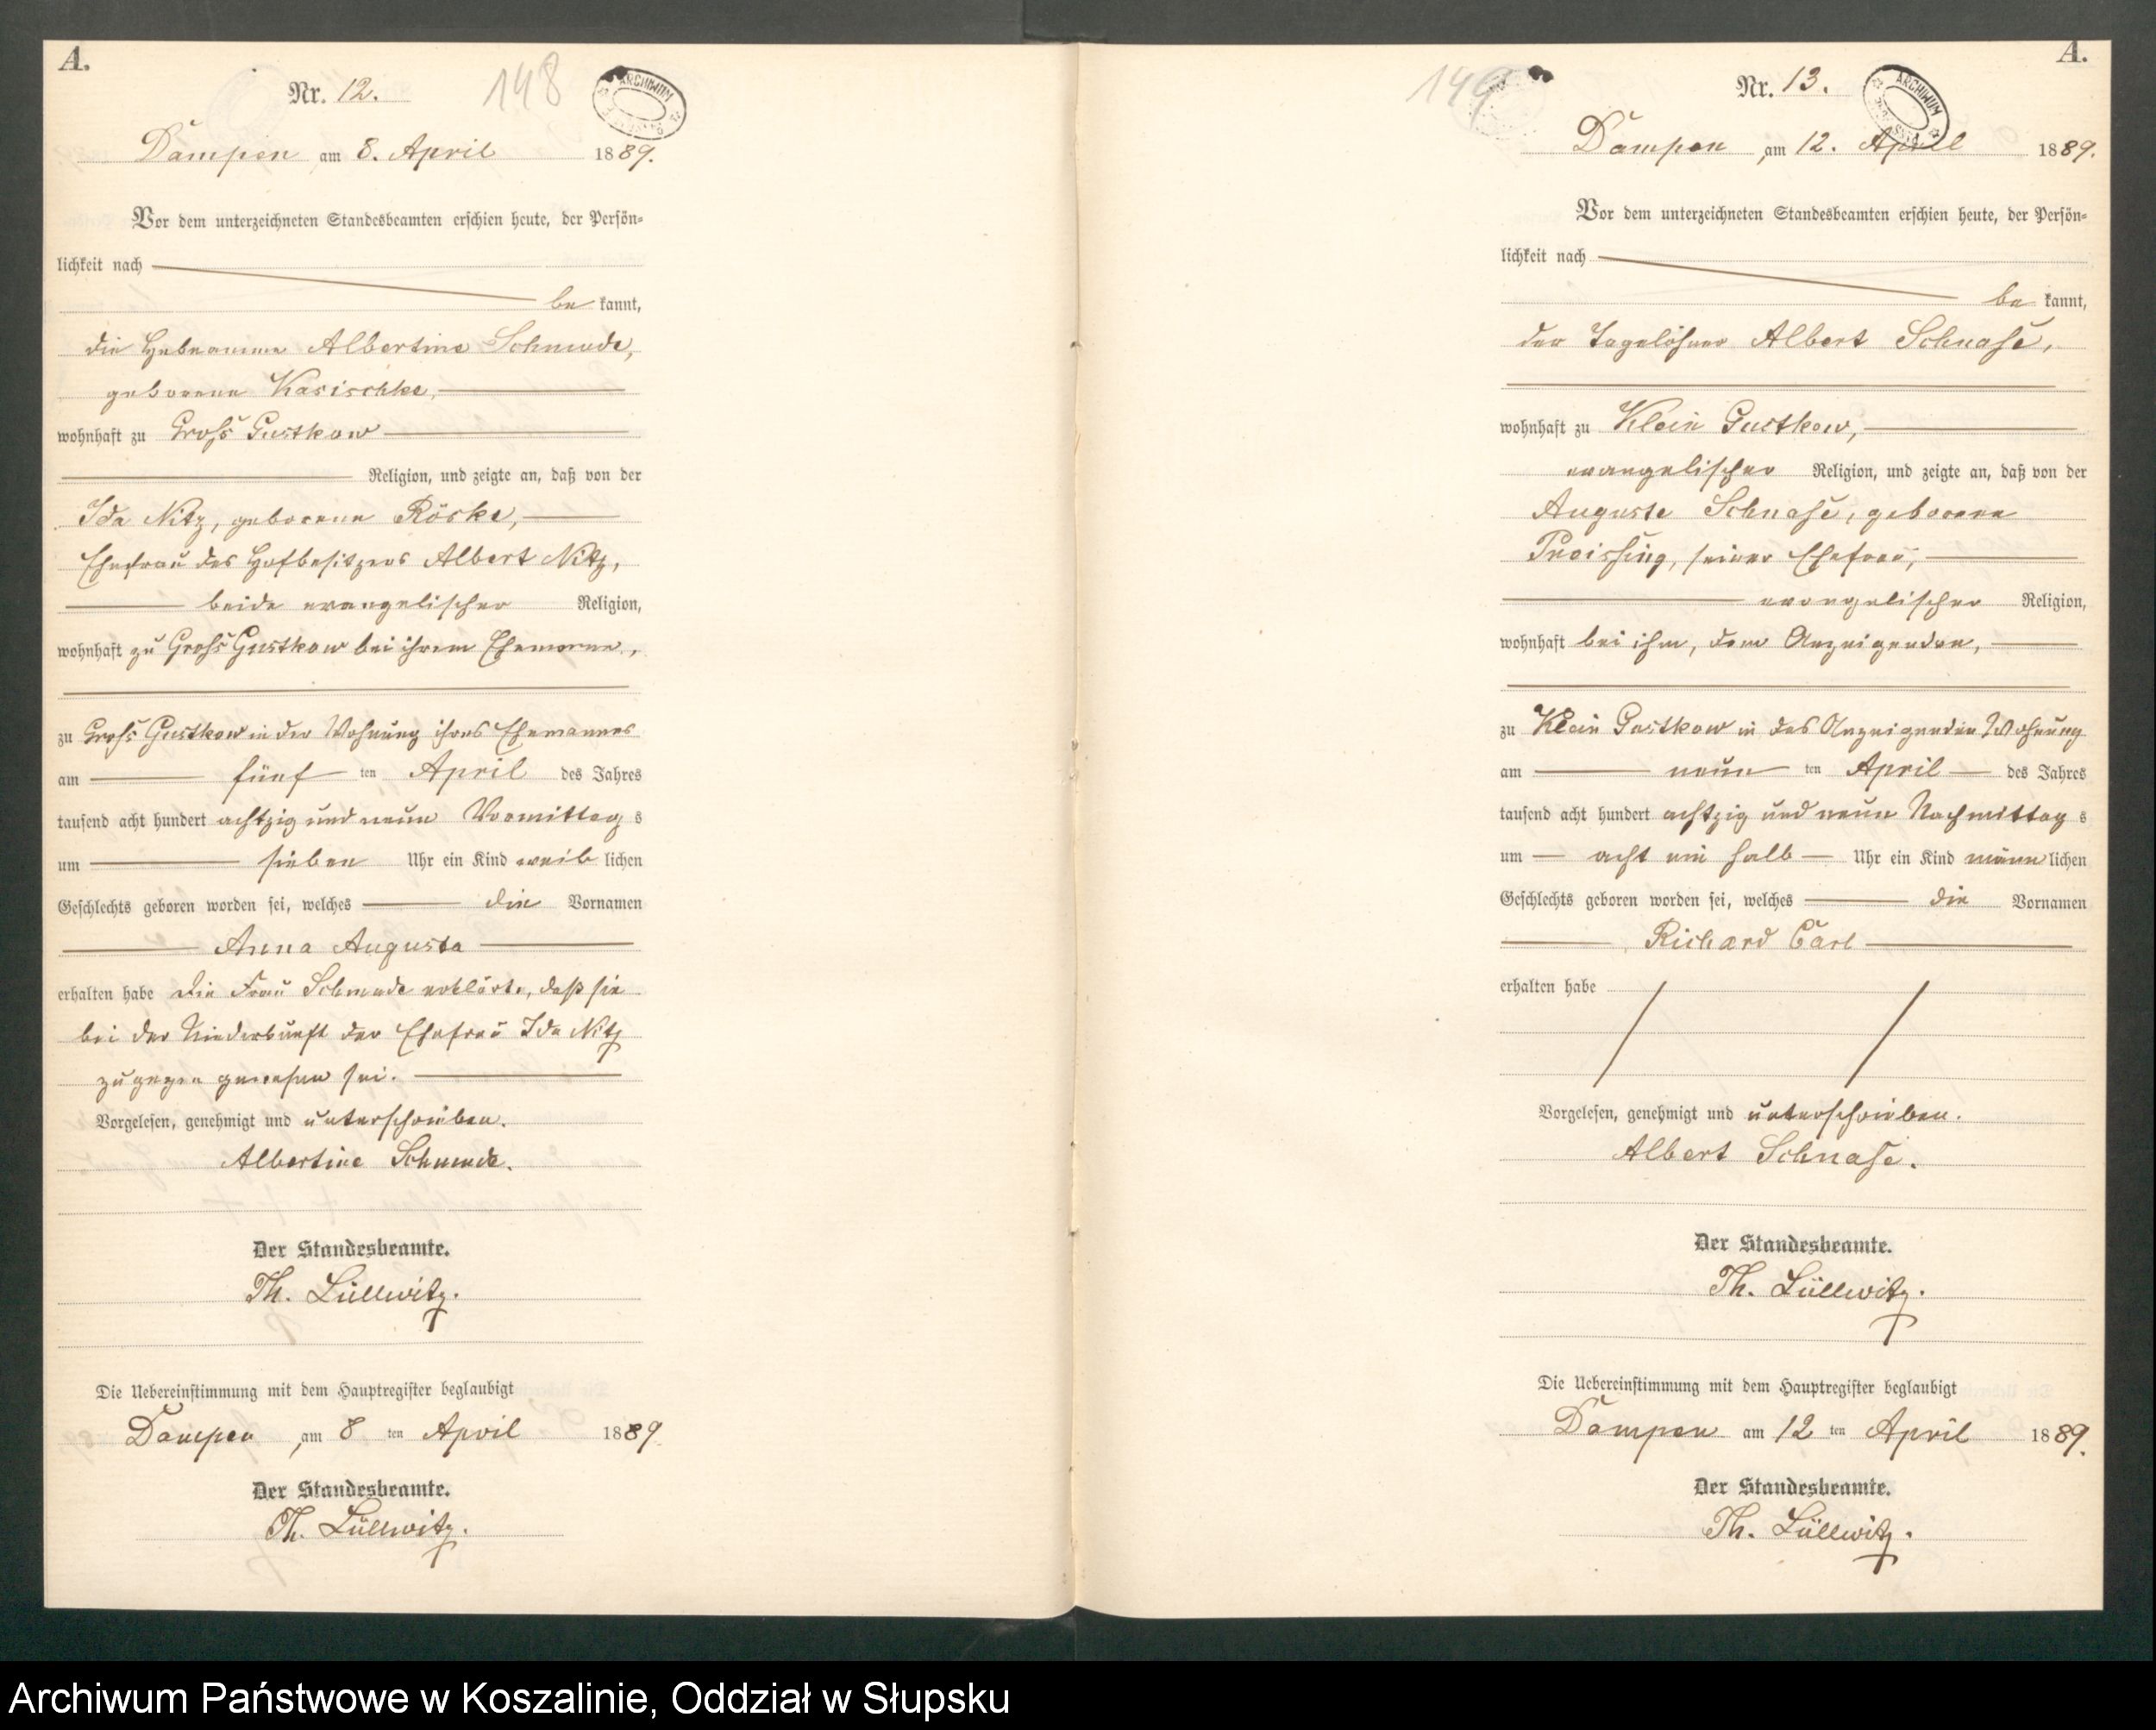 A.
Nr. 12.
148
ARCHIWUM
Dampen am 8. April 1889.
Vor dem unterzeichneten Standesbeamten erschien heute, der Persön=
lichkeit nach
be kannt,
die Hebeamme Albertine Schmude,
geborene Kasischke,
wohnhaft zu Groß Gustkow
Religion, und zeigte an, daß von der
Ida Nitz, geborene Röske,
Ehefrau des Hofbesitzers Albert Nitz,
beide evangelischer Religion,
wohnhaft zu Groß Gustkow bei ihrem Ehemanne,
zu Groß Gustkow in der Wohnung ihres Ehemannes
am fünf ten April des Jahres
tausend acht hundert achtzig und neun Vormittag s
um sieben Uhr ein Kind weib lichen
Geschlechts geboren worden sei, welches die Vornamen
Anna Augusta
erhalten habe Die Frau Schmude erklärte, daß sie
bei der Niederkunft der Ehefrau Ida Nitz
zugegen gewesen sei.
Vorgelesen, genehmigt und unterschrieben.
Albertine Schmude.
Der Standesbeamte.
Th. Lüllwitz.
Die Uebereinstimmung mit dem Hauptregister beglaubigt
Dampen am 8 ten April 1889
Der Standesbeamte.
Th. Lüllwitz.
A.
149
Nr. 13.
ARCHIWUM
Dampen am 12. April 1889.
Vor dem unterzeichneten Standesbeamten erschien heute, der Persön=
lichkeit nach
be kannt,
der Tagelöhner Albert Schnase,
wohnhaft zu Klein Gustkow,
evangelischer Religion, und zeigte an, daß von der
Auguste Schnase, geborene
seiner Ehefrau,
evangelischer Religion,
wohnhaft bei ihm, dem Anzeigenden,
zu Klein Gustkow in des Anzeigenden Wohnung
am neun ten April des Jahres
tausend acht hundert achtzig und neun Nachmittag s
um acht ein halb Uhr ein Kind männ lichen
Geschlechts geboren worden sei, welches die Vornamen
Richard Carl
erhalten habe
Vorgelesen, genehmigt und unterschrieben.
Albert Schnase.
Der Standesbeamte.
Th. Lüllwitz.
Die Uebereinstimmung mit dem Hauptregister beglaubigt
Dampen am 12 ten April 1889.
Der Standesbeamte.
Th. Lüllwitz.
Archiwum Państwowe w Koszalinie, Oddział w Słupsku